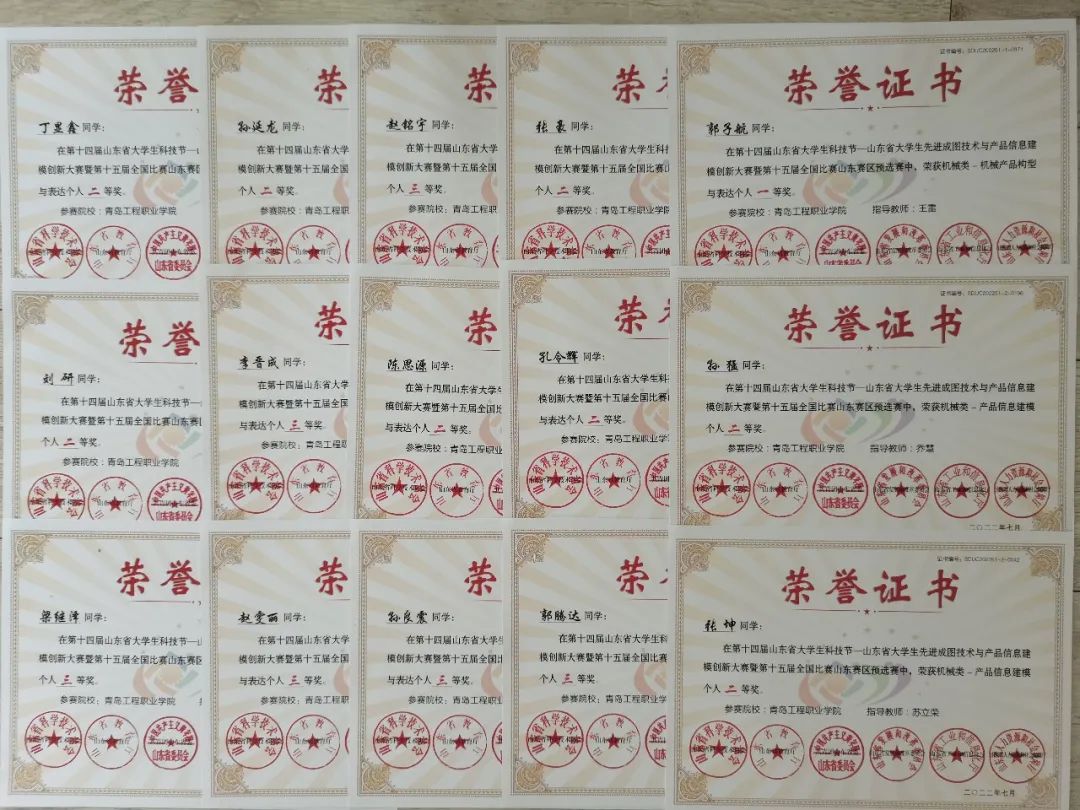 荣誉
丁昱鑫 同学：
在第十四届山东省大学生科技节—山
模创新大赛暨第十五届全国比赛山东赛区
与表达个人 二 等奖。
参赛院校：青岛工程职业学院
山东省委员会
荣
孙延龙 同学：
在第十四届山东省大学
模创新大赛暨第十五届全国
个人 二 等奖。
参赛院校：青岛工程职
荣
赵铭宇 同学：
在第十四届山东省大学生
模创新大赛暨第十五届全国比
个人 三 等奖。
参赛院校：青岛工程职业
荣
张豪 同学：
在第十四届山东省大学生科
模创新大赛暨第十五届全国比赛
个人 二 等奖。
参赛院校：青岛工程职业学院
荣誉证书
郭子航 同学：
在第十四届山东省大学生科技节—山东省大学生先进成图技术与产品信息建
模创新大赛暨第十五届全国比赛山东赛区预选赛中，荣获机械类－机械产品构型
与表达个人 一 等奖。
参赛院校：青岛工程职业学院 指导教师：王雷
荣誉
刘研 同学：
在第十四届山东省大学生科技节—
模创新大赛暨第十五届全国比赛山东赛区
个人 二 等奖。
参赛院校：青岛工程职业学院
山东省委员会
荣
李晋成 同学：
在第十四届山东省大学
模创新大赛暨第十五届全国
与表达个人 三 等奖。
参赛院校：青岛工程职
荣
陈思源 同学：
在第十四届山东省大学生
模创新大赛暨第十五届全国比
与表达个人 二 等奖。
参赛院校：青岛工程职业
荣
孔令辉 同学：
在第十四届山东省大学生科
模创新大赛暨第十五届全国比赛
与表达个人 二 等奖。
参赛院校：青岛工程职业学
荣誉证书
孙猛 同学：
在第十四届山东省大学生科技节—山东省大学生先进成图技术与产品信息建
模创新大赛暨第十五届全国比赛山东赛区预选赛中，荣获机械类－产品信息建模
个人 二 等奖。
参赛院校：青岛工程职业学院 指导教师：乔慧
二〇二二年七月
荣誉
梁继泽 同学：
在第十四届山东省大学生科技节—山
模创新大赛暨第十五届全国比赛山东赛区
个人 三 等奖。
参赛院校：青岛工程职业学院
山东省委员会
荣
赵雯丽 同学：
在第十四届山东省大学
模创新大赛暨第十五届全国
与表达个人 三 等奖。
参赛院校：青岛工程职
荣
孙良震 同学：
在第十四届山东省大学生
模创新大赛暨第十五届全国比
与表达个人 三 等奖。
参赛院校：青岛工程职业
荣
郭腾达 同学：
在第十四届山东省大学生科
模创新大赛暨第十五届全国比赛
个人 三 等奖。
参赛院校：青岛工程职业学院
荣誉证书
张坤 同学：
在第十四届山东省大学生科技节—山东省大学生先进成图技术与产品信息建
模创新大赛暨第十五届全国比赛山东赛区预选赛中，荣获机械类－产品信息建模
个人 二 等奖。
参赛院校：青岛工程职业学院 指导教师：苏立荣
山东省委员会
二〇二二年七月